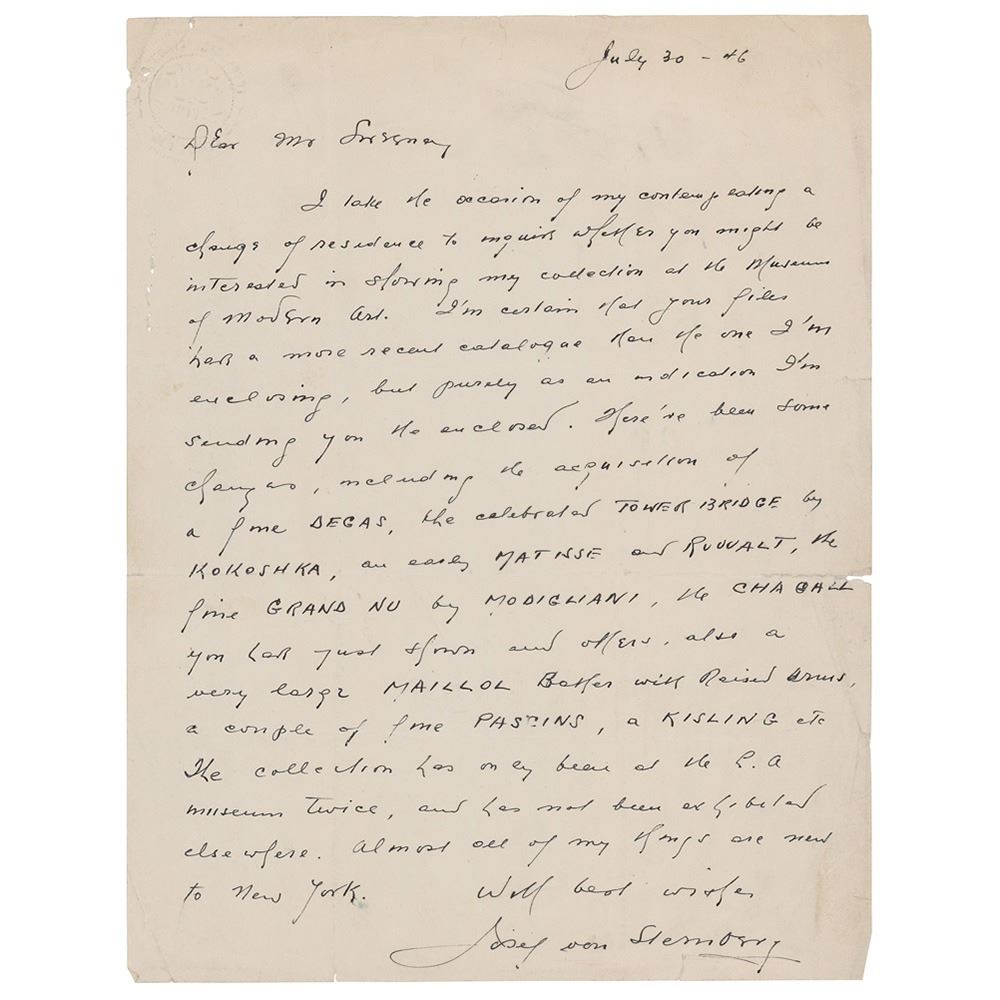 July 30 - 46
Dear Mr Sweeney
I take the occasion of my contemplating a
change of residence to inquire whether you might be
interested in showing my collection at the Museum
of Modern Art. I'm certain that your files
have a more recent catalogue than the one I'm
enclosing, but purely as an indication I'm
sending you the enclosed. There've been some
changes, including the acquisition of
a fine DEGAS, the celebrated TOWER BRIDGE by
KOKOSHKA, an early MATISSE and RUUVALT, the
fine GRAND NU by MODIGLIANI, the CHAGALL
you have just shown and others, also a
very large MAILLOL Bather with Raised Arms,
a couple of fine PASCINS, a KISLING etc
The collection has only been at the L.A
museum twice, and has not been exhibited
elsewhere. Almost all of my things are new
to New York. With best wishes
Josef von Sternberg